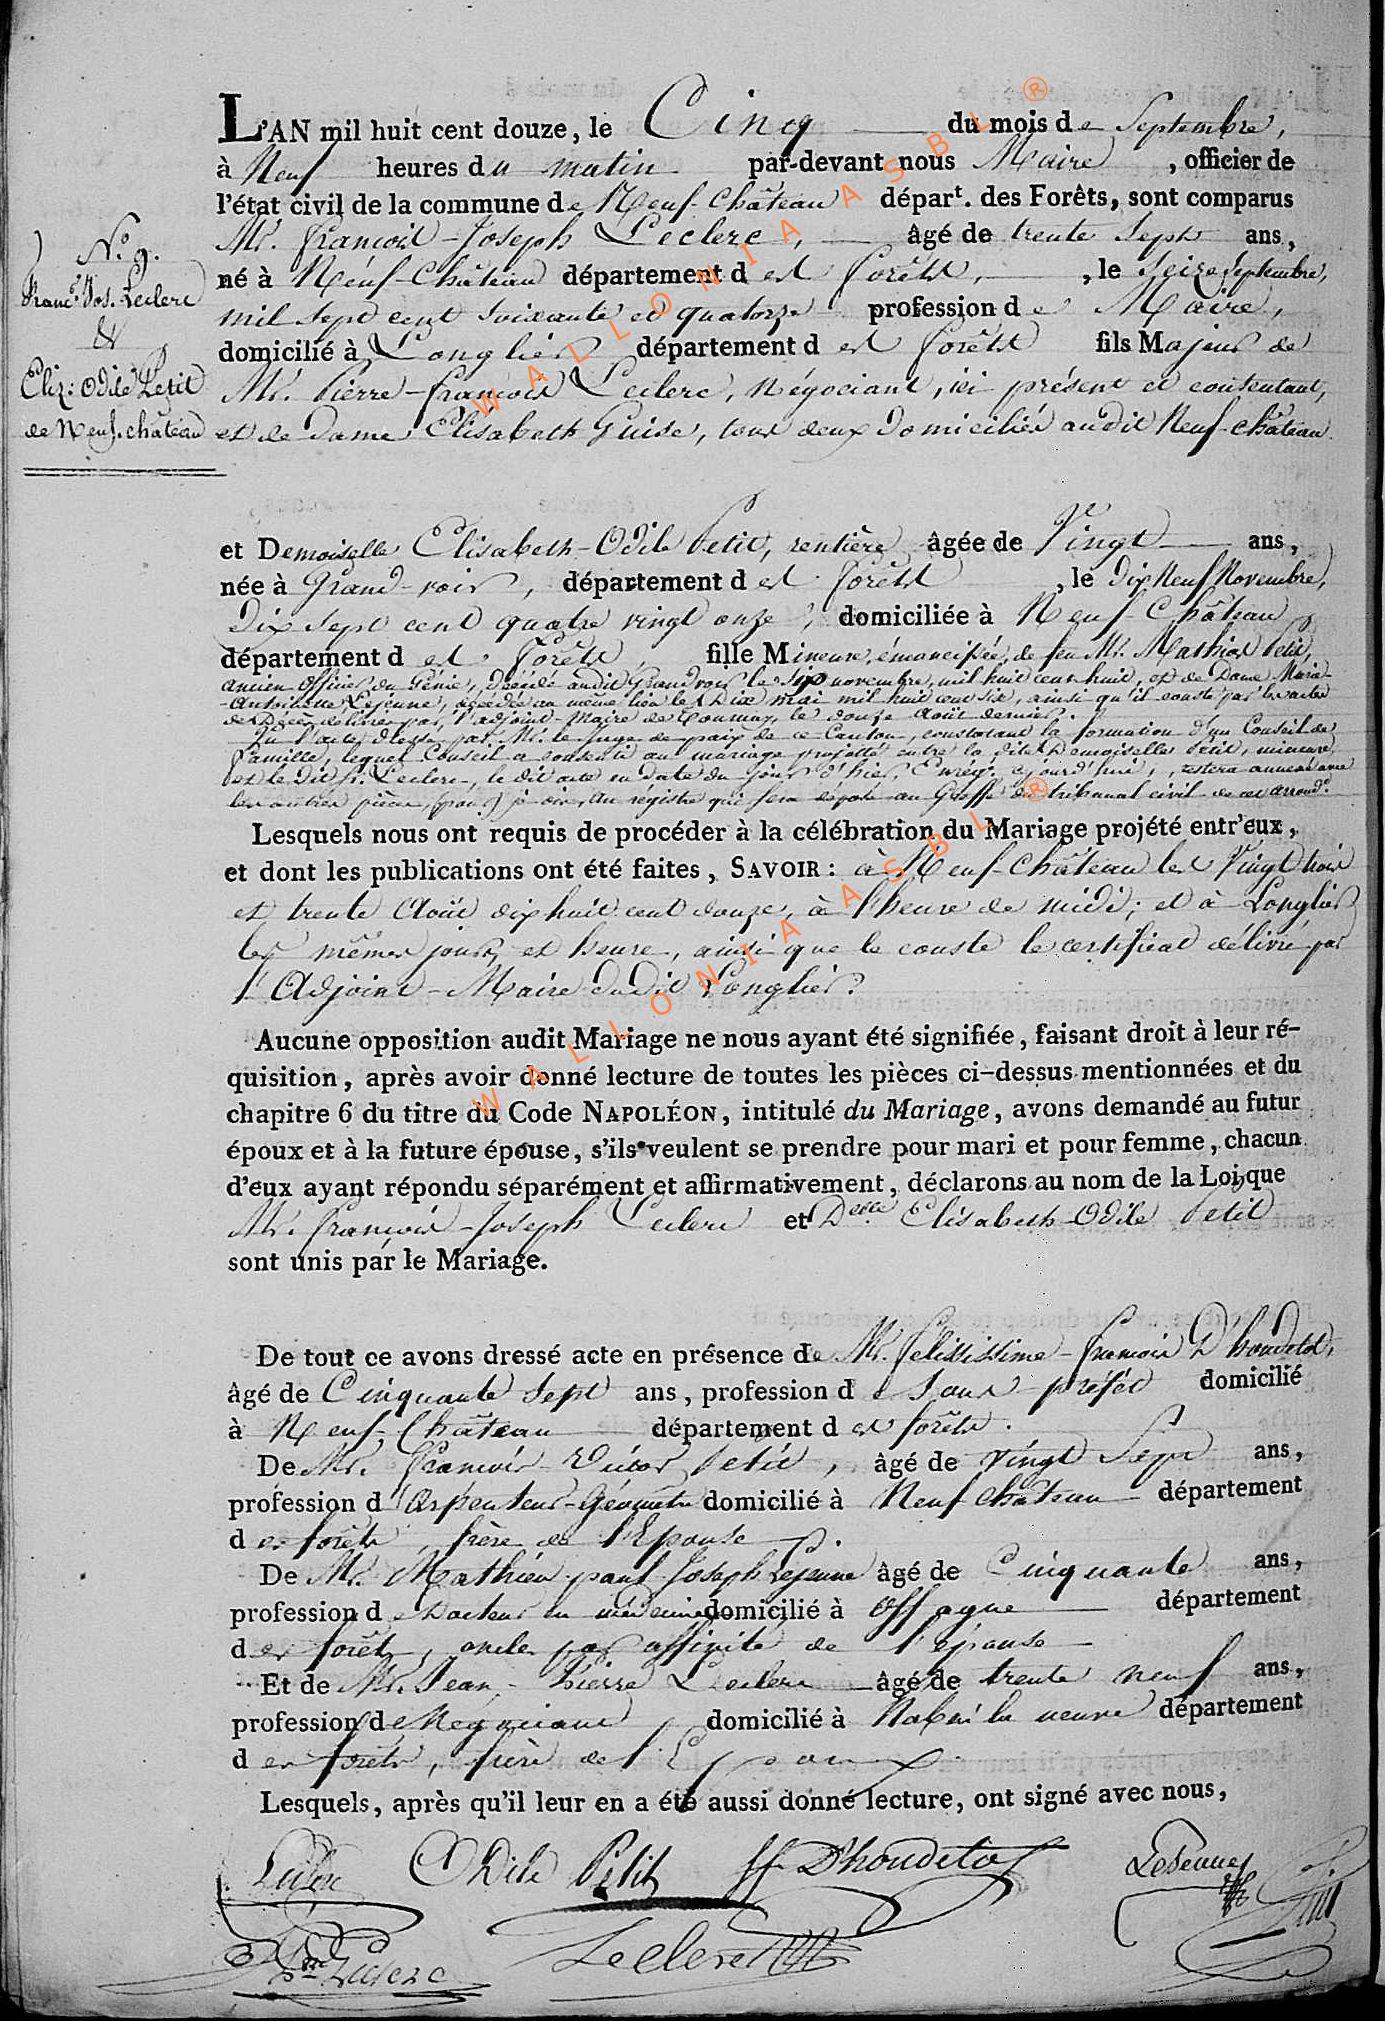 L'AN mil huit cent douze, le Cinq du mois de Septembre,
à Neuf heures du matin par-devant nous Maire, officier de
l'état civil de la commune de Neuf-Château dépar<sup>t</sup>. des Forêts, sont comparus
Mr. François-Joseph Leclerc, âgé de trente Sept ans,
né à Neuf-Château département des Forêts, le Seize Septembre,
mil sept cent soixante et quatorze profession de Maire,
domicilié à Longlier département des Forêts fils Majeur de
Mr. Pierre-François Leclerc, Négociant, ici présent et contentant,
et de Dame Elisabeth Guise, tous deux domiciliés audit Neuf-château.
N°. 9.
Franc.s Jos. Leclerc
&
Eliz: Odile Petit
de Neuf-château
et Demoiselle Elisabeth-Odile Petit, rentière âgée de Vingt ans,
née à Grand-voir, département des Forêts, le dix Neuf Novembre,
Dix sept cent quatre vingt onze, domiciliée à Neuf-Château
département des Forêts, fille Mineure, émancipée, de feu Mr. Mathias Petit,
ancien Officier du Génie, décédé audit Grandvoir le novembre, mil huit cent huit, et de Dame Marie-
-Antoinette Lejeune, décédée au même lieu le Dix mai mil huit cent six, ainsi qu'il conste par les actes
de Décès délivrés par l'adjoint-Maire de Tournay, le douze Août dernier.
Vu l'acte dressé par Mr. le Juge de paix de ce Canton, constatant la formation d'un Conseil de
famille, lequel Conseil a consenti au mariage projetté entre la dite Demoiselle Petit, mineure,
et le dit Sr. Leclerc, le dit acte en date du jour d'hier, Enrég. aujourd'hui, restera annexé avec
les autres pièces, au régistre qui sera déposé au Greffe du tribunal civil de cet arrond.
Lesquels nous ont requis de procéder à la célébration du Mariage projété entr'eux,
et dont les publications ont été faites, SAVOIR : à Neuf-Château les Vingt trois
et trente Août dix huit cent douze, à l'heure de midi; et à Longlier
les mêmes jours et heure, ainsi que le conste le certificat délivré par
l'Adjoint-Maire dudit Longlier.
Aucune opposition audit Mariage ne nous ayant été signifiée, faisant droit à leur ré-
quisition, après avoir donné lecture de toutes les pièces ci-dessus mentionnées et du
chapitre 6 du titre du Code NAPOLÉON, intitulé du Mariage, avons demandé au futur
époux et à la future épouse, s'ils veulent se prendre pour mari et pour femme, chacun
d'eux ayant répondu séparément et affirmativement, déclarons au nom de la Loi que
Mr. François-Joseph Leclerc et Delle Elisabeth-Odile Petit
sont unis par le Mariage.
De tout ce avons dressé acte en présence de Mr. Felissime-François D'houdetot,
âgé de Cinquante sept ans, profession de Sous-préfet domicilié
à Neuf-Château département des forêts.
De Mr. François Victor Petit, âgé de vingt Sept ans,
profession d'Arpenteur-Géomètre domicilié à Neuf château département
des forêts, frère de l'Epouse.
De Mr. Mathieu paul Joseph Lejeune âgé de Cinquante ans,
profession de Docteur en médecine domicilié à Offagne département
des forêts, oncle par affinité de l'épouse
Et de Mr. Jean-Pierre Leclerc âgé de trente neuf ans,
profession de Négociant domicilié à la neuve département
des forêts, frère de l'Epoux.
Lesquels, après qu'il leur en a été aussi donné lecture, ont signé avec nous,
Leclerc Odile Petit ff D'houdetot LeJeune Petit
Leclerc Leclerc
WALLONIA ASBL ®
WALLONIA ASBL ®